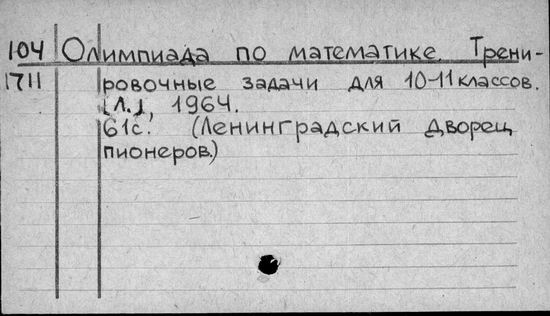 104 Олимпиада по математике. Трени-
1711 ровочные задачи для 10-11 классов.
[Л.], 1964.
61с. (Ленинградский дворец
пионеров.)